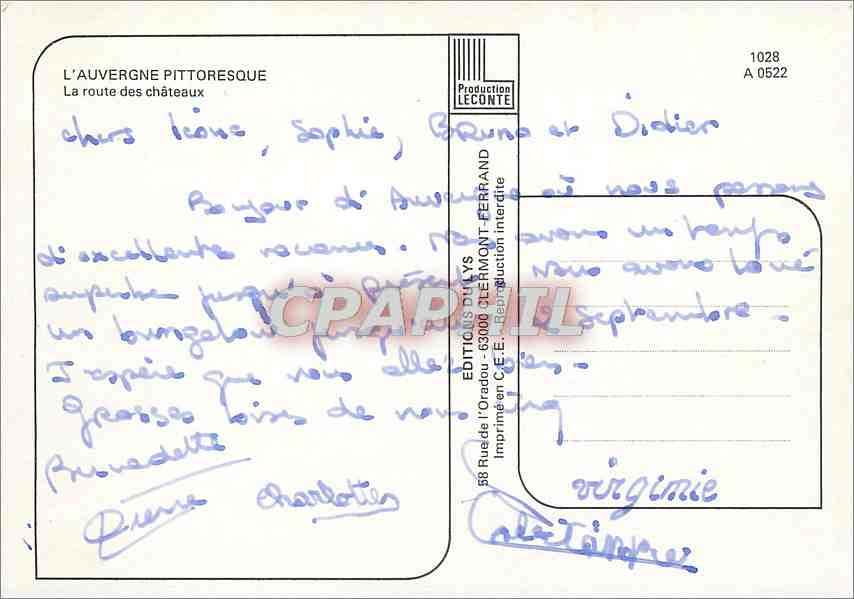 L'AUVERGNE PITTORESQUE
La route des châteaux
Production
LECONTE
1028
A 0522
chers , Sophie, Bruno et Didier
Bonjour d'Auvergne où nous passons
d'excellente vacances. Nous avons un temps
superbe jusqu'à présent. Nous avons loué
un bungalow jusqu'au Septembre.
J'espère que vous allez bien.
Grosses bises de nous cinq
Bernadette
Pierre
Charlotte
virginie
EDITIONS DU LYS
58 Rue de l'Oradou - 63000 CLERMONT-FERRAND
Imprimé en C.E.E. Reproduction interdite
CPAPHIL